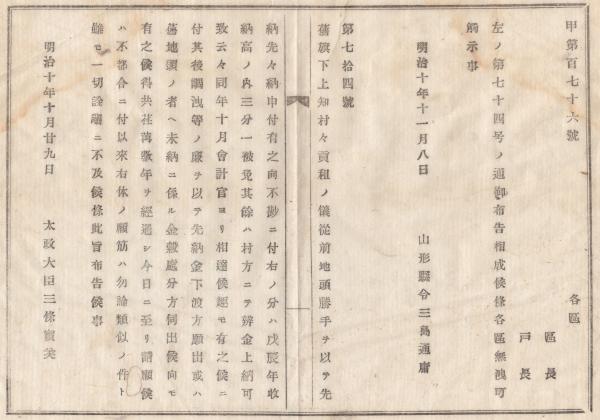 甲第百七十六號
各區
區長
戸長
左ノ第七十四号ノ通御布告相成候條各區無洩可
觸示事
明治十年十一月八日
山形縣令三島通庸
第七拾四號
舊旗下上知村々貢租ノ儀從前地頭勝手ヲ以テ先
納先々納申付有之向不尠ニ付右ノ分ハ戊辰年收
納高ノ內三分一被免其餘ハ村方ニテ辨金上納可
致云々同年十月會計官ヨリ相達候經モ有之候ニ
付其後調洩等ノ廉ヲ以テ先納金下渡方願出或ハ
舊地頭ノ者ヘ未納ニ係ル金穀處分方伺出候向モ
有之候得共花萬數年ヲ經過シ今日ニ至リ請願候
ハ不都合ニ付以來右休ノ願筋ハ勿論類似ノ件ト
雖モ一切詮議ニ不及候條此旨布告候事
明治十年十月廿九日
太政大臣三條實美